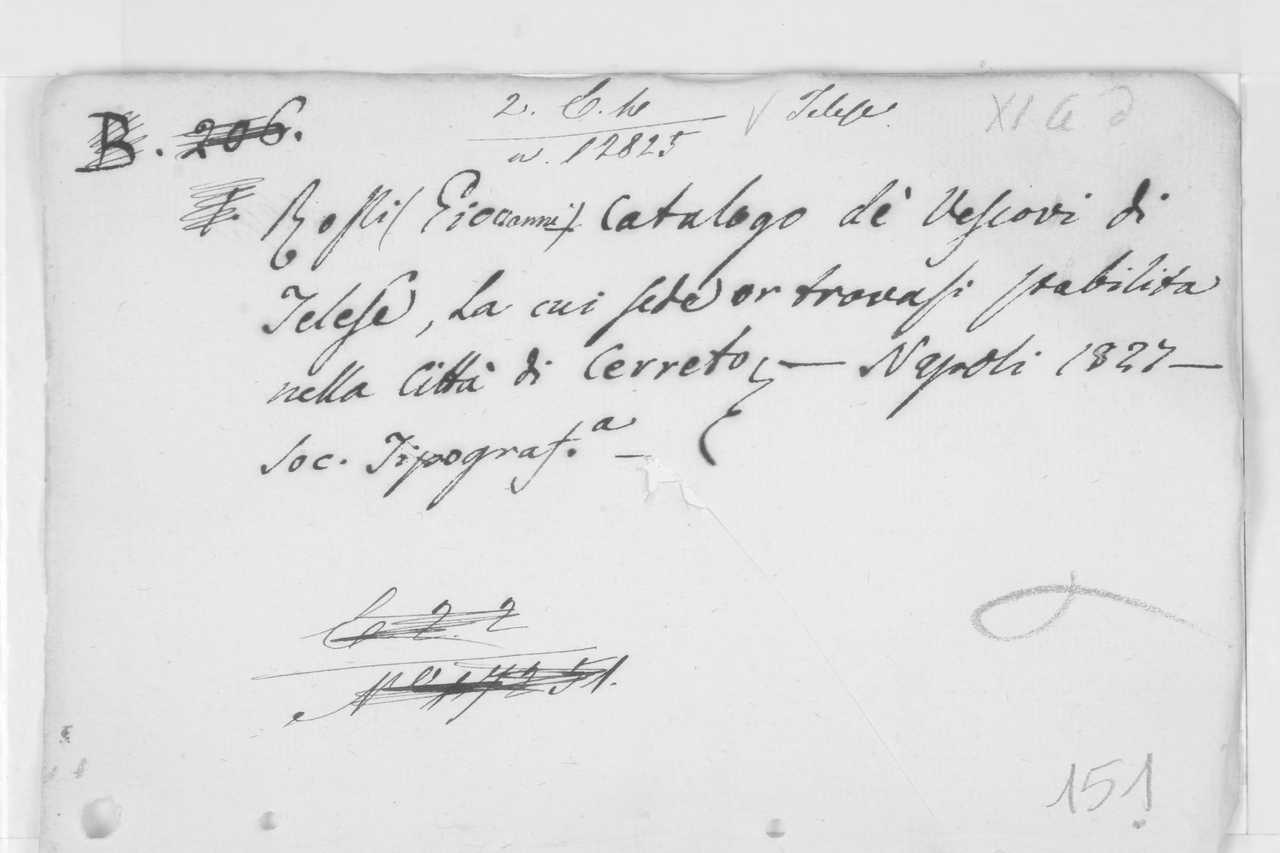 B. 206.
2. C. w
n. 12825
Telese
XI G d
Rossi (Giovanni) Catalogo dè Vescovi di
Telese, la cui sede or trovasi stabilita
nella Città di Cerreto, — Napoli 1827 —
Soc. Tipograf.ª —
C 2. 2
Nº 17251.
151